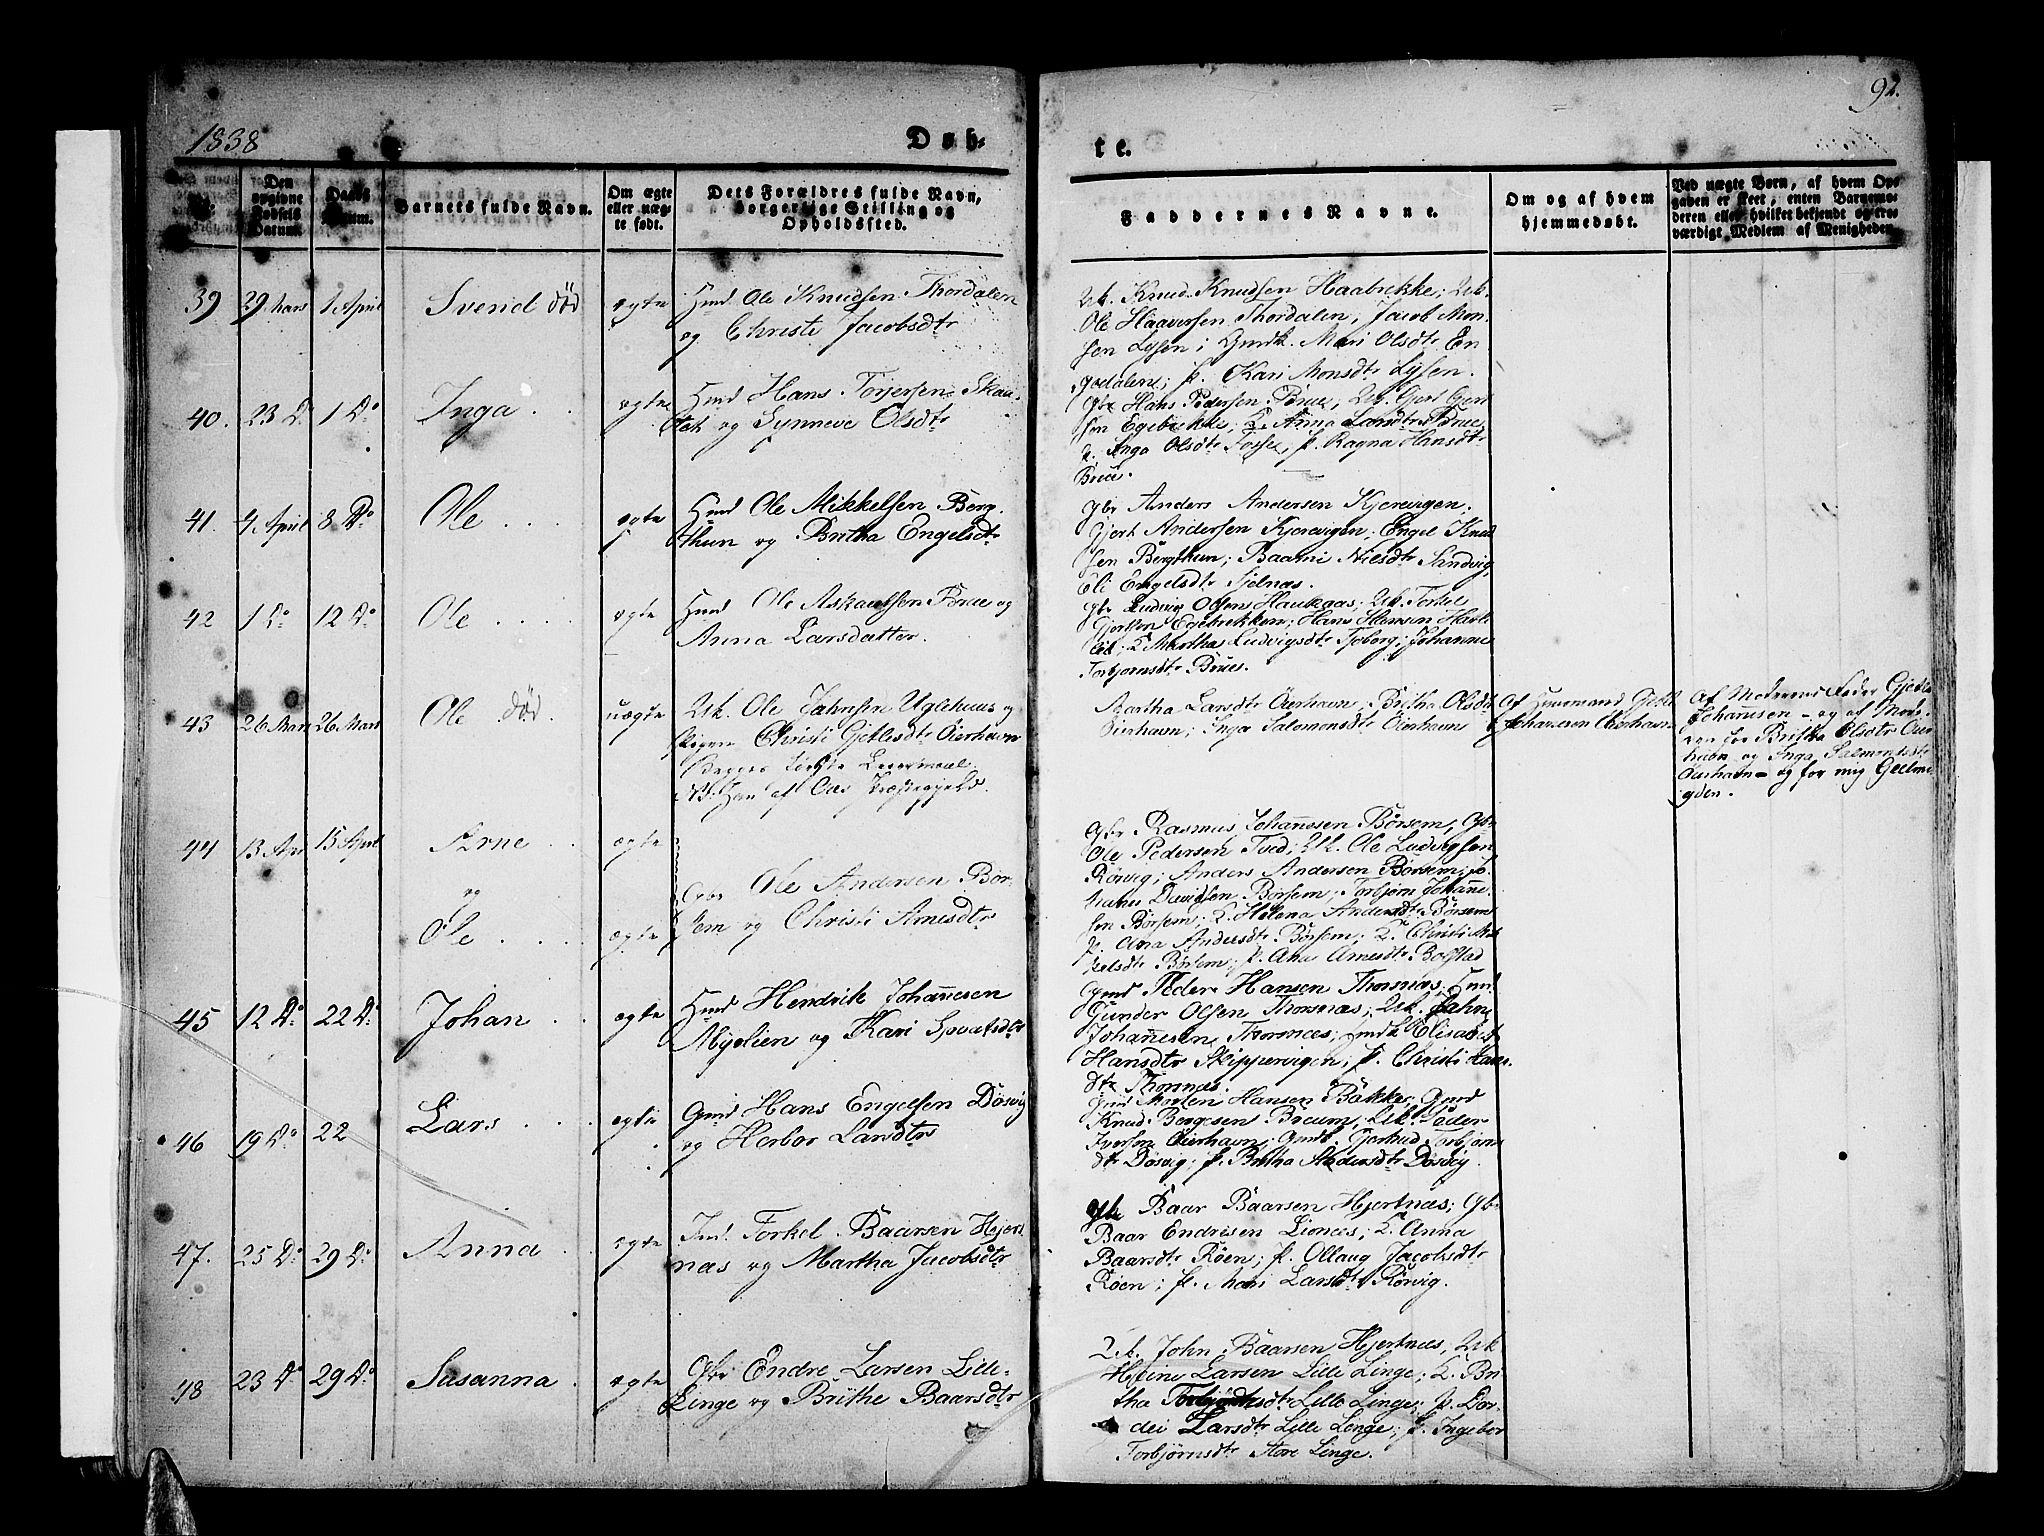 92.
1838
Døb-
te.
Den
opgivne
Fødsels
Datum.
Daabs
Datum.
Barnets fulde Navn.
Om ægte
eller uæg-
te født.
Dets Forældres fulde Navn,
borgerlige Stilling og
Opholdssted.
Faddernes Navne.
Om og af hvem
hjemmedøbt.
Ved uægte Børn, af hvem Op-
gaven er skeet, enten Barnemo-
deren eller hvilket bekjendt og tro-
værdigt Medlem af Menigheden.
39
29 Mars
1 April
Svend død
ægte
Huusd. Ole Knudsen Thordalen
og Christi Jacobsdtr
Knud Knudsen Haabrekke;
Ole Haaversen Thordalen; Jacob Mon-
sen Lysen; Gmdk. Mari Olsdtr En-
godalen; p. Kari Monsdtr Lysen.
40.
23 Do
1 Do
Inga
ægte
Hmd Hans Torjersen Skau-
og Synneve Olsdtr
Gbr Hans Pedersen Brue; Uk. Gjert Gjert-
sen Egebrekke; K. Anna Larsdtr Brue;
p. Inga Olsdtr Tosse; p. Ragna Hansdtr
Brue.
41.
4 April
8 Do
Ole
ægte
Hmd Ole Mikkelsen Berg-
thun og Britha Engelsdtr
Gbr Anders Andersen Kjerevigen;
Gjert Andersen Kjerevigen; Engel Knud-
sen Bergthun; Baarni Nielsdtr Sandvig;
Eli Engelsdtr Sjelnæs.
42
1 Do
12 Do
Ole
ægte
Hmd Ole Askautsen Brue og
Anna Larsdatter.
Gbr Ludvig Olsen Haukaas; Uk. Torkel
Gjertsen Egebrekken; Hans Hansen
K Martha Ludvigsdtr Tjoborg; Johanne
Torbjørnsdtr Brues.
43
26 Mars
26 Mars
Ole død.
uægte
Uk. Ole Jahnsen Uglehuus og
pigen Christi Gjetlesdtr Øierhavn
Begges første Leiermaal
NB: Han af Oos Præstegjeld.
Martha Larsdtr Øierhavn; Britha Olsdtr
Øierhavn; Inga Salomonsdtr Øierhavn
Af Huusmand Gjetle
Johannesen Øierhavn
Af Moderens Fader Gjetle
Johannesen - og af Mode-
ren for Britha Olsdtr Øier-
havn og Inga Salmonsdtr
Øierhavn - og for mig Gjelme-
yden.
44
13 Apr
15 April
Arne
ægte
og
Ole
ægte
Gbr Ole Andersen Bør-
sem og Christi Arnesdtr
Gbr Rasmus Johannesen Børsem, Gbr
Ole Pedersen Tved; Uk. Ole Ludvigsen
Rørvig; Anders Andersen Børsem; Jo-
hanes Davidsen Børsem; Torbjørn Johanne-
sen Børsem; K. Helena Andersdtr Børsem
p. Ana Andersdtr Børsem; K. Christi Mik-
kelsdtr Børsem; p. Ana Arnesdtr Bolstad
45
12 Do
22 Do
Johan
ægte
Hmd Hendrik Johannesen
Myelien og Kari Sjvatsdtr
Gmd Peder Hansen Thornæs; Hmd
Gunder Olsen Thornæs; Uk. Jahn
Johannesen Thornæs; Gmdk Elisabet
Hansdtr Skippervigen; p. Christi Hans-
dtr Thornæs.
46
19 Do
22
Lars
ægte
Gmd Hans Engelsen Døsvig
og Herbor Larsdtr
Gmd Morten Hansen Bakke, Gmd
Knud Børgesen Breum, Uk. Peder
Iversen Øierhavn; Gmdk Gjertrud Torbjørns-
dtr Døsvig; p. Britha Andersdtr Døsvig.
47.
25 Do
29 Do
Anna
ægte
Inds. Torkel Baarsen Hjert-
næs og Martha Jacobsdtr
Gbr Baar Baarsen Hjertnæs; Gbr
Baar Endresen Lionæs; K. Anna
Baarsdtr Røen; p. Ollaug Jacobsdtr
Røen; p. Mari Larsdtr Rørvig.
48
23 Do
29 Do
Susanna
ægte
Gbr Endre Larsen Lille-
Linge og Brithe Baarsdtr
Uk. John Baarsen Hjertnæs, Uk
Heine Larsen Lille Linge; K. Bri-
tha Torbjørnsdtr Lille Linge; p. Dor-
dei Larsdtr Lille Linge; p. Ingebor
Torbjørnsdtr Store Linge.